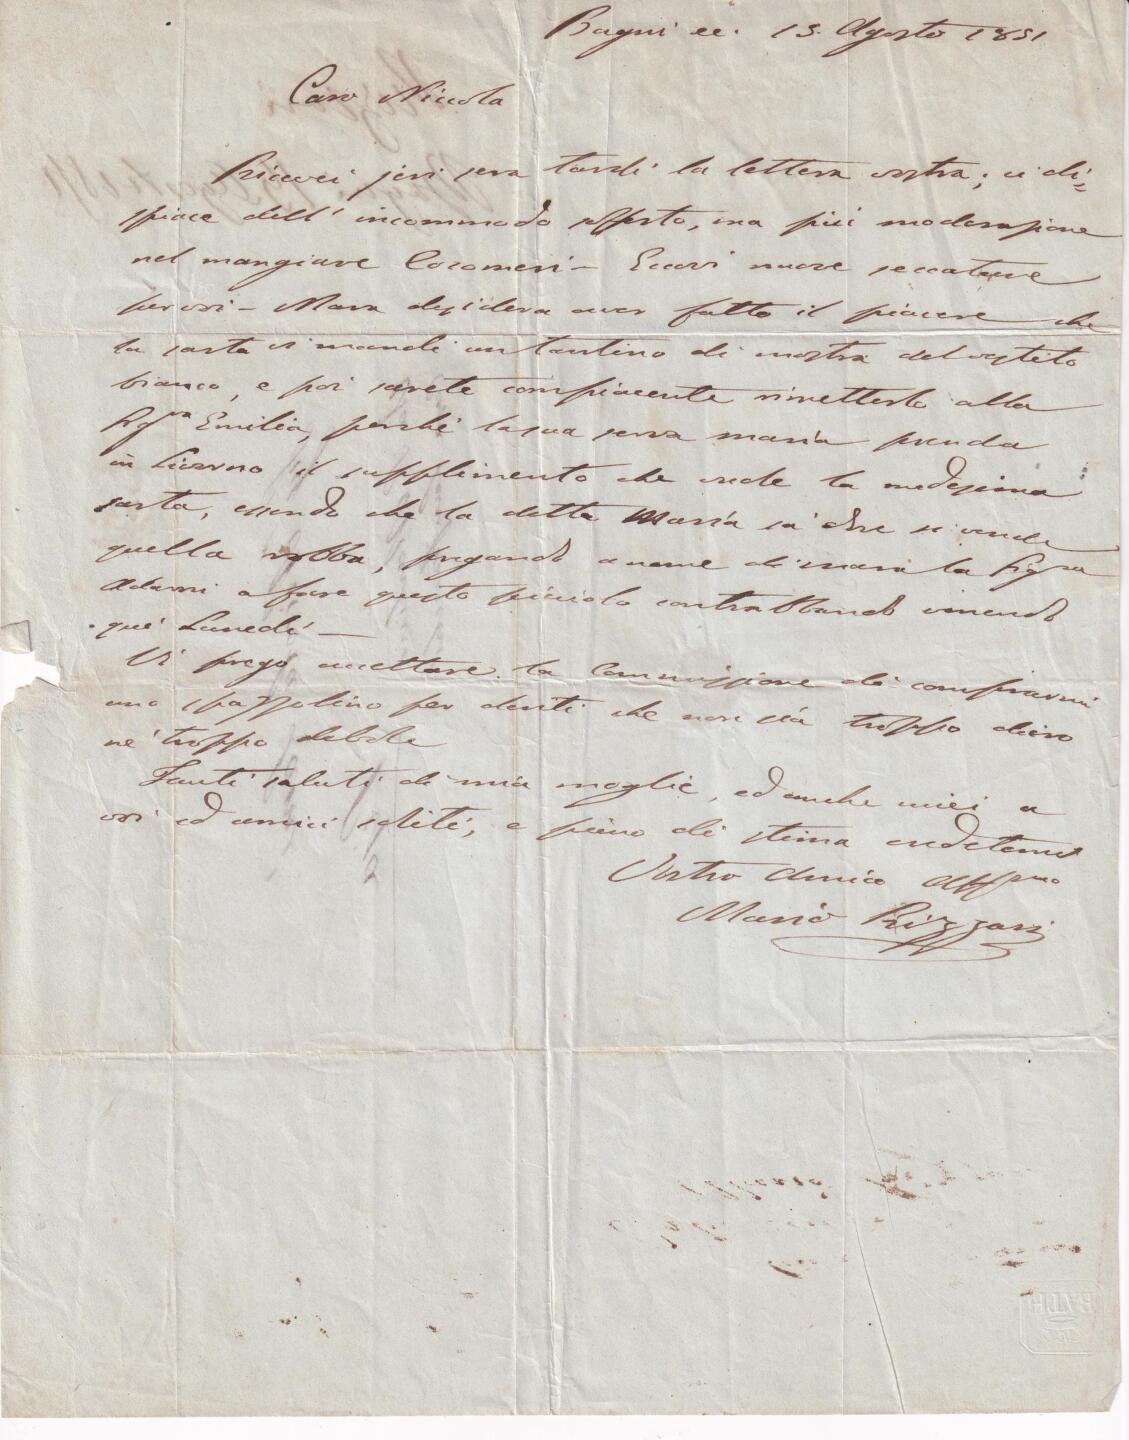 Bagni ec. 13. Agosto 1851
Caro Niccola
Ricevei jeri sera tardi la lettera vostra; ci di=
spiace dell' incommodo sofferto, ma più moderazione
nel mangiare Cocomeri - Eccovi nuove seccature
per voi - Mara desidera aver fatto il piacere che
la sarta vi mandi un tantino di mostra del vestito
bianco, e poi sarete compiacente rimetterlo alla
Sigra Emilia, perché la sua serva Maria prenda
in Livorno il supplimento che vede la medesima
sarta, essendo che la detta Maria sà dove si vende
quella robba, pregando a nome di Mara la Sigra
Adami a fare questo picciolo contrabbando venendo
quì Lunedì -
Vi prego accettare la Commissione di comprarmi
uno spazzolino per denti che non sia troppo duro
nè troppo debole
Tanti saluti di mia moglie, ed anche miei a
voi ed amici soliti, e pieno di stima credetemi
Vostro Amico Affmo
Mario Rizzari
BATH